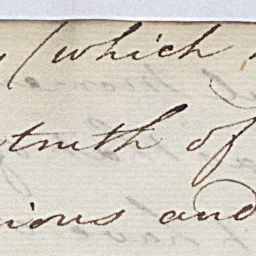 (which
truth of
ious and